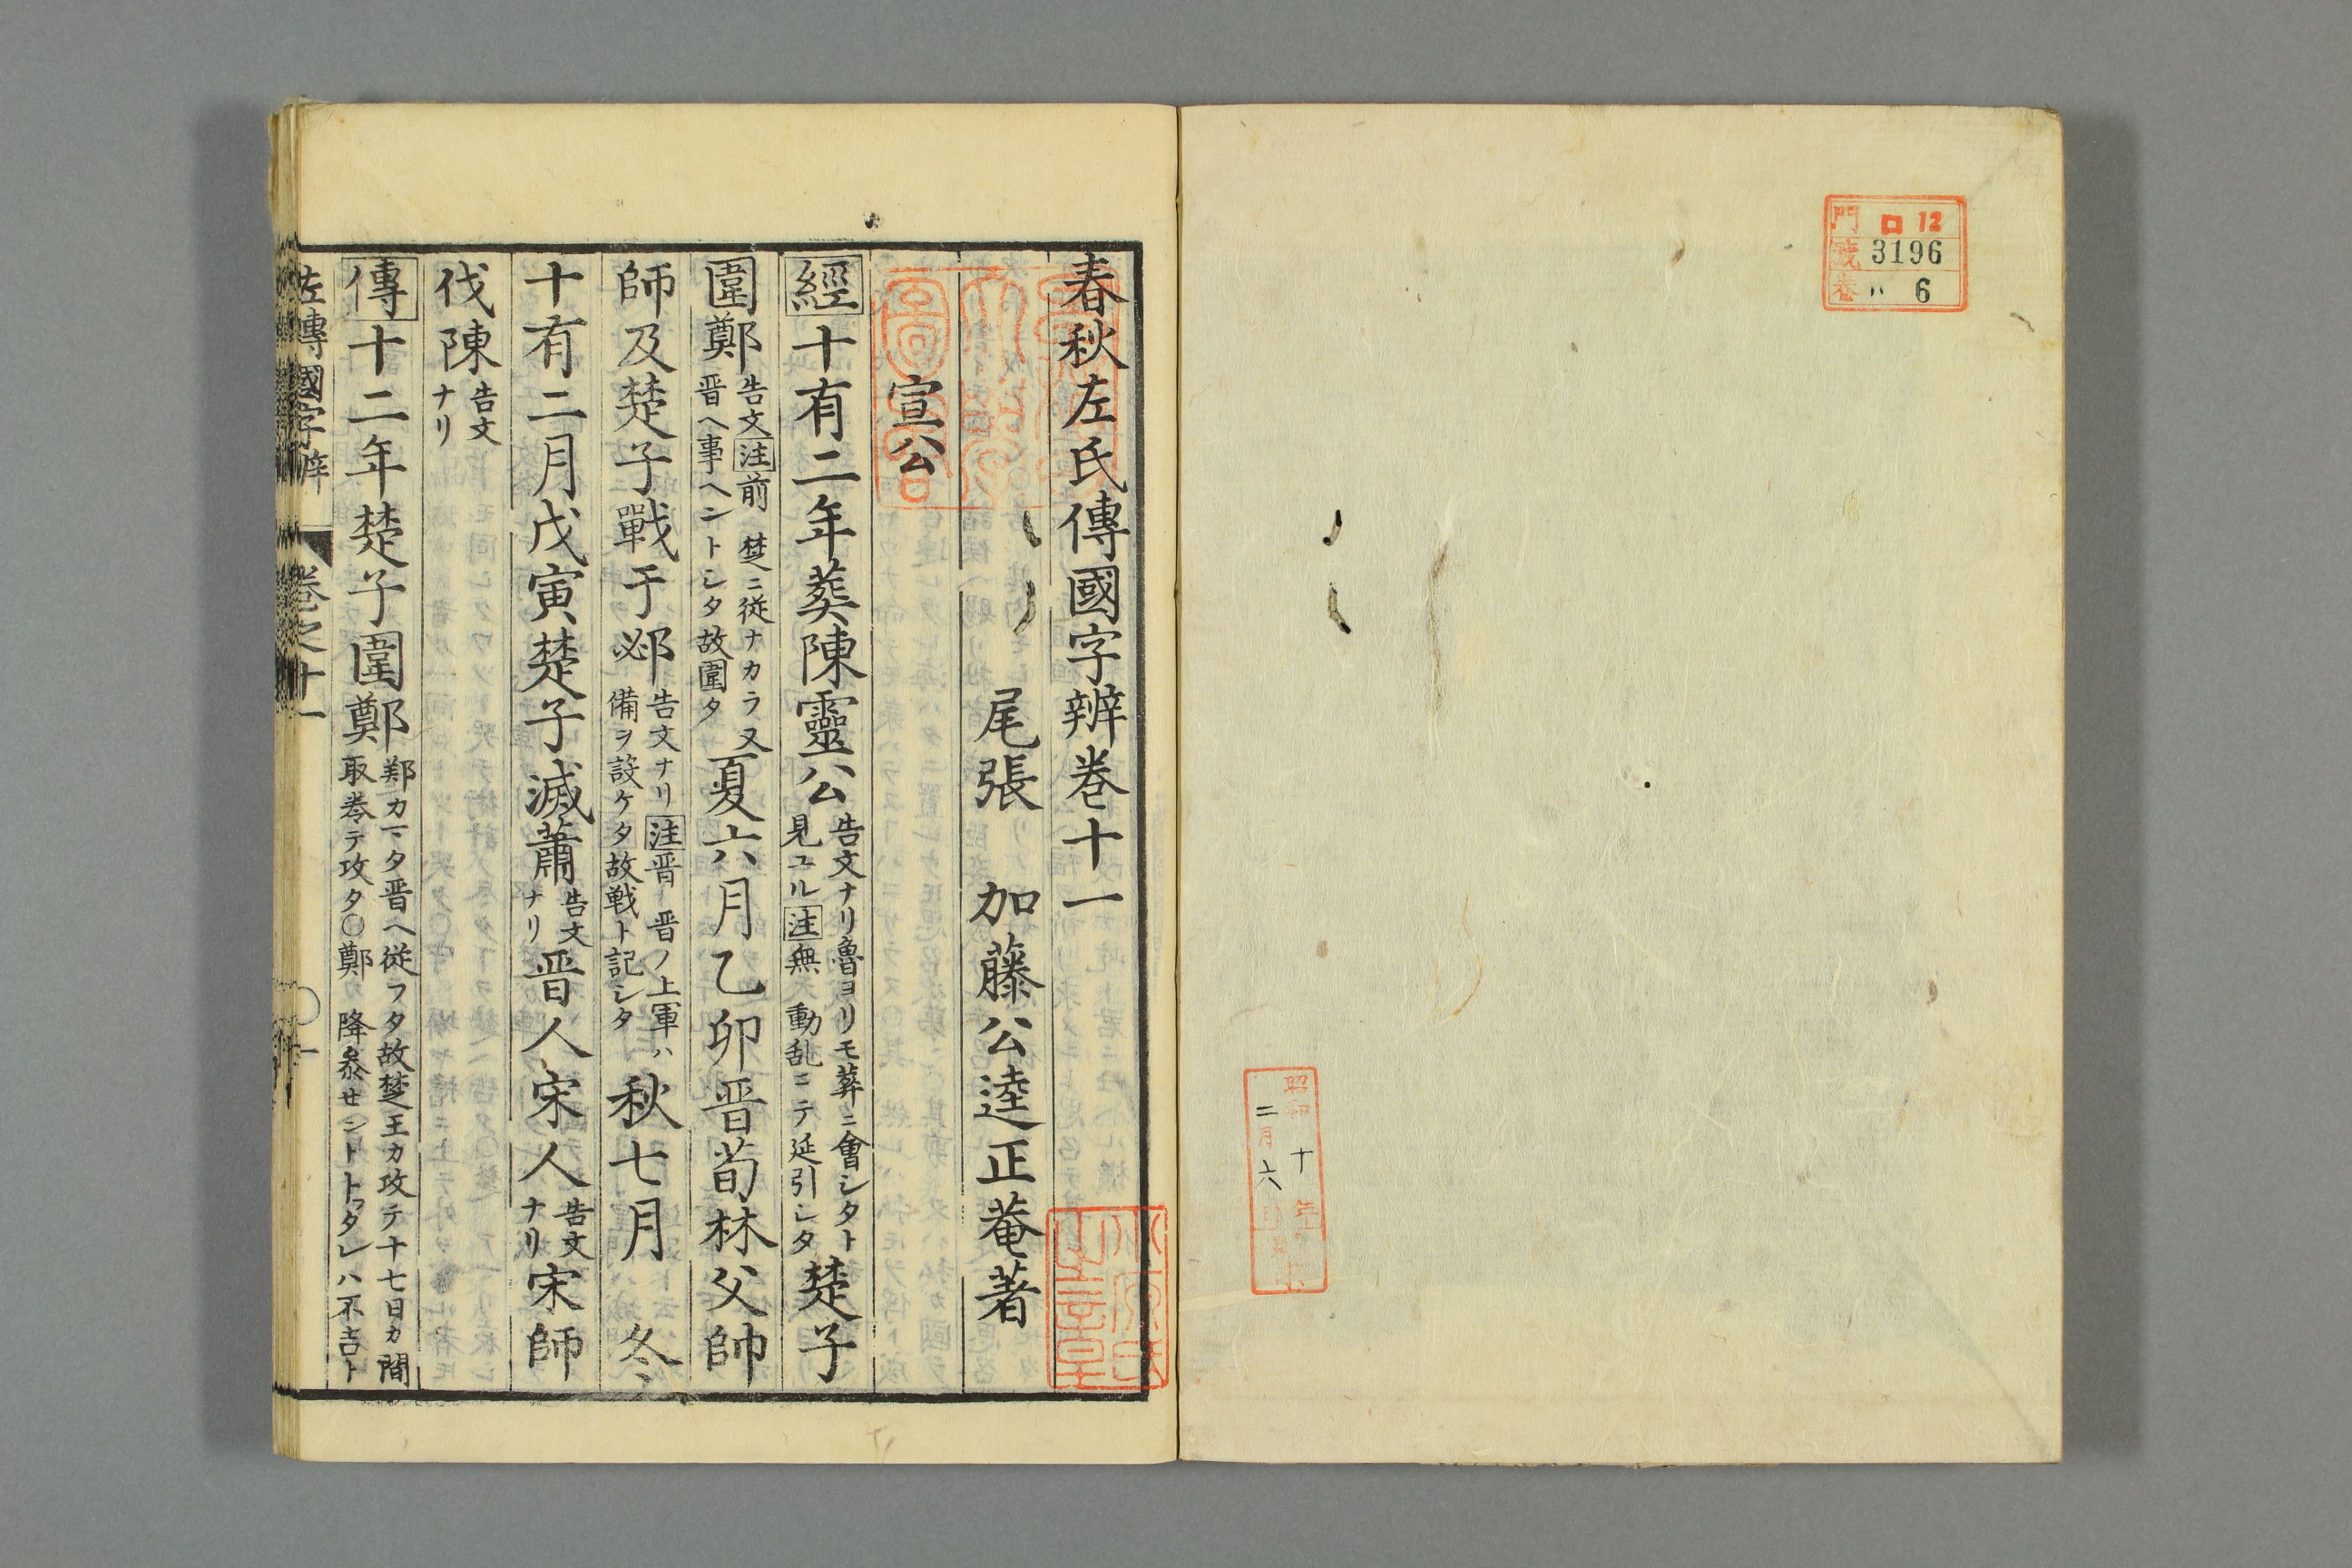 門 ロ 12
號 3196
巻 〃 6
昭和十年
二月六日
春秋左氏傳國字辨巻十一
尾張 加藤公逵正菴著
宣公
經十有二年葬陳靈公
告文ナリ魯ヨリモ葬ニ會シタト
見ユル注無 動乱ニテ延引シタ
楚子
圍鄭
告文注前 楚ニ従ナカラ又
晋ヘ事ヘントシタ故圍タ
夏六月乙卯晋荀林父帥
師及楚子戰于邲
告文ナリ注晋 晋ノ上軍ハ
備ヲ設ケタ故戦ト記シタ
秋七月 冬
十有二月戊寅楚子滅蕭
告文
ナリ
晋人宋人
告文
ナリ
宋師
伐陳
告文
ナリ
傳十二年楚子圍鄭
鄭カマタ晋ヘ従フタ故楚王カ攻テ十七日カ間
取巻テ攻タ〇鄭カ 降参セントトフタレハ不吉ト
左傳國字辨 巻之十一